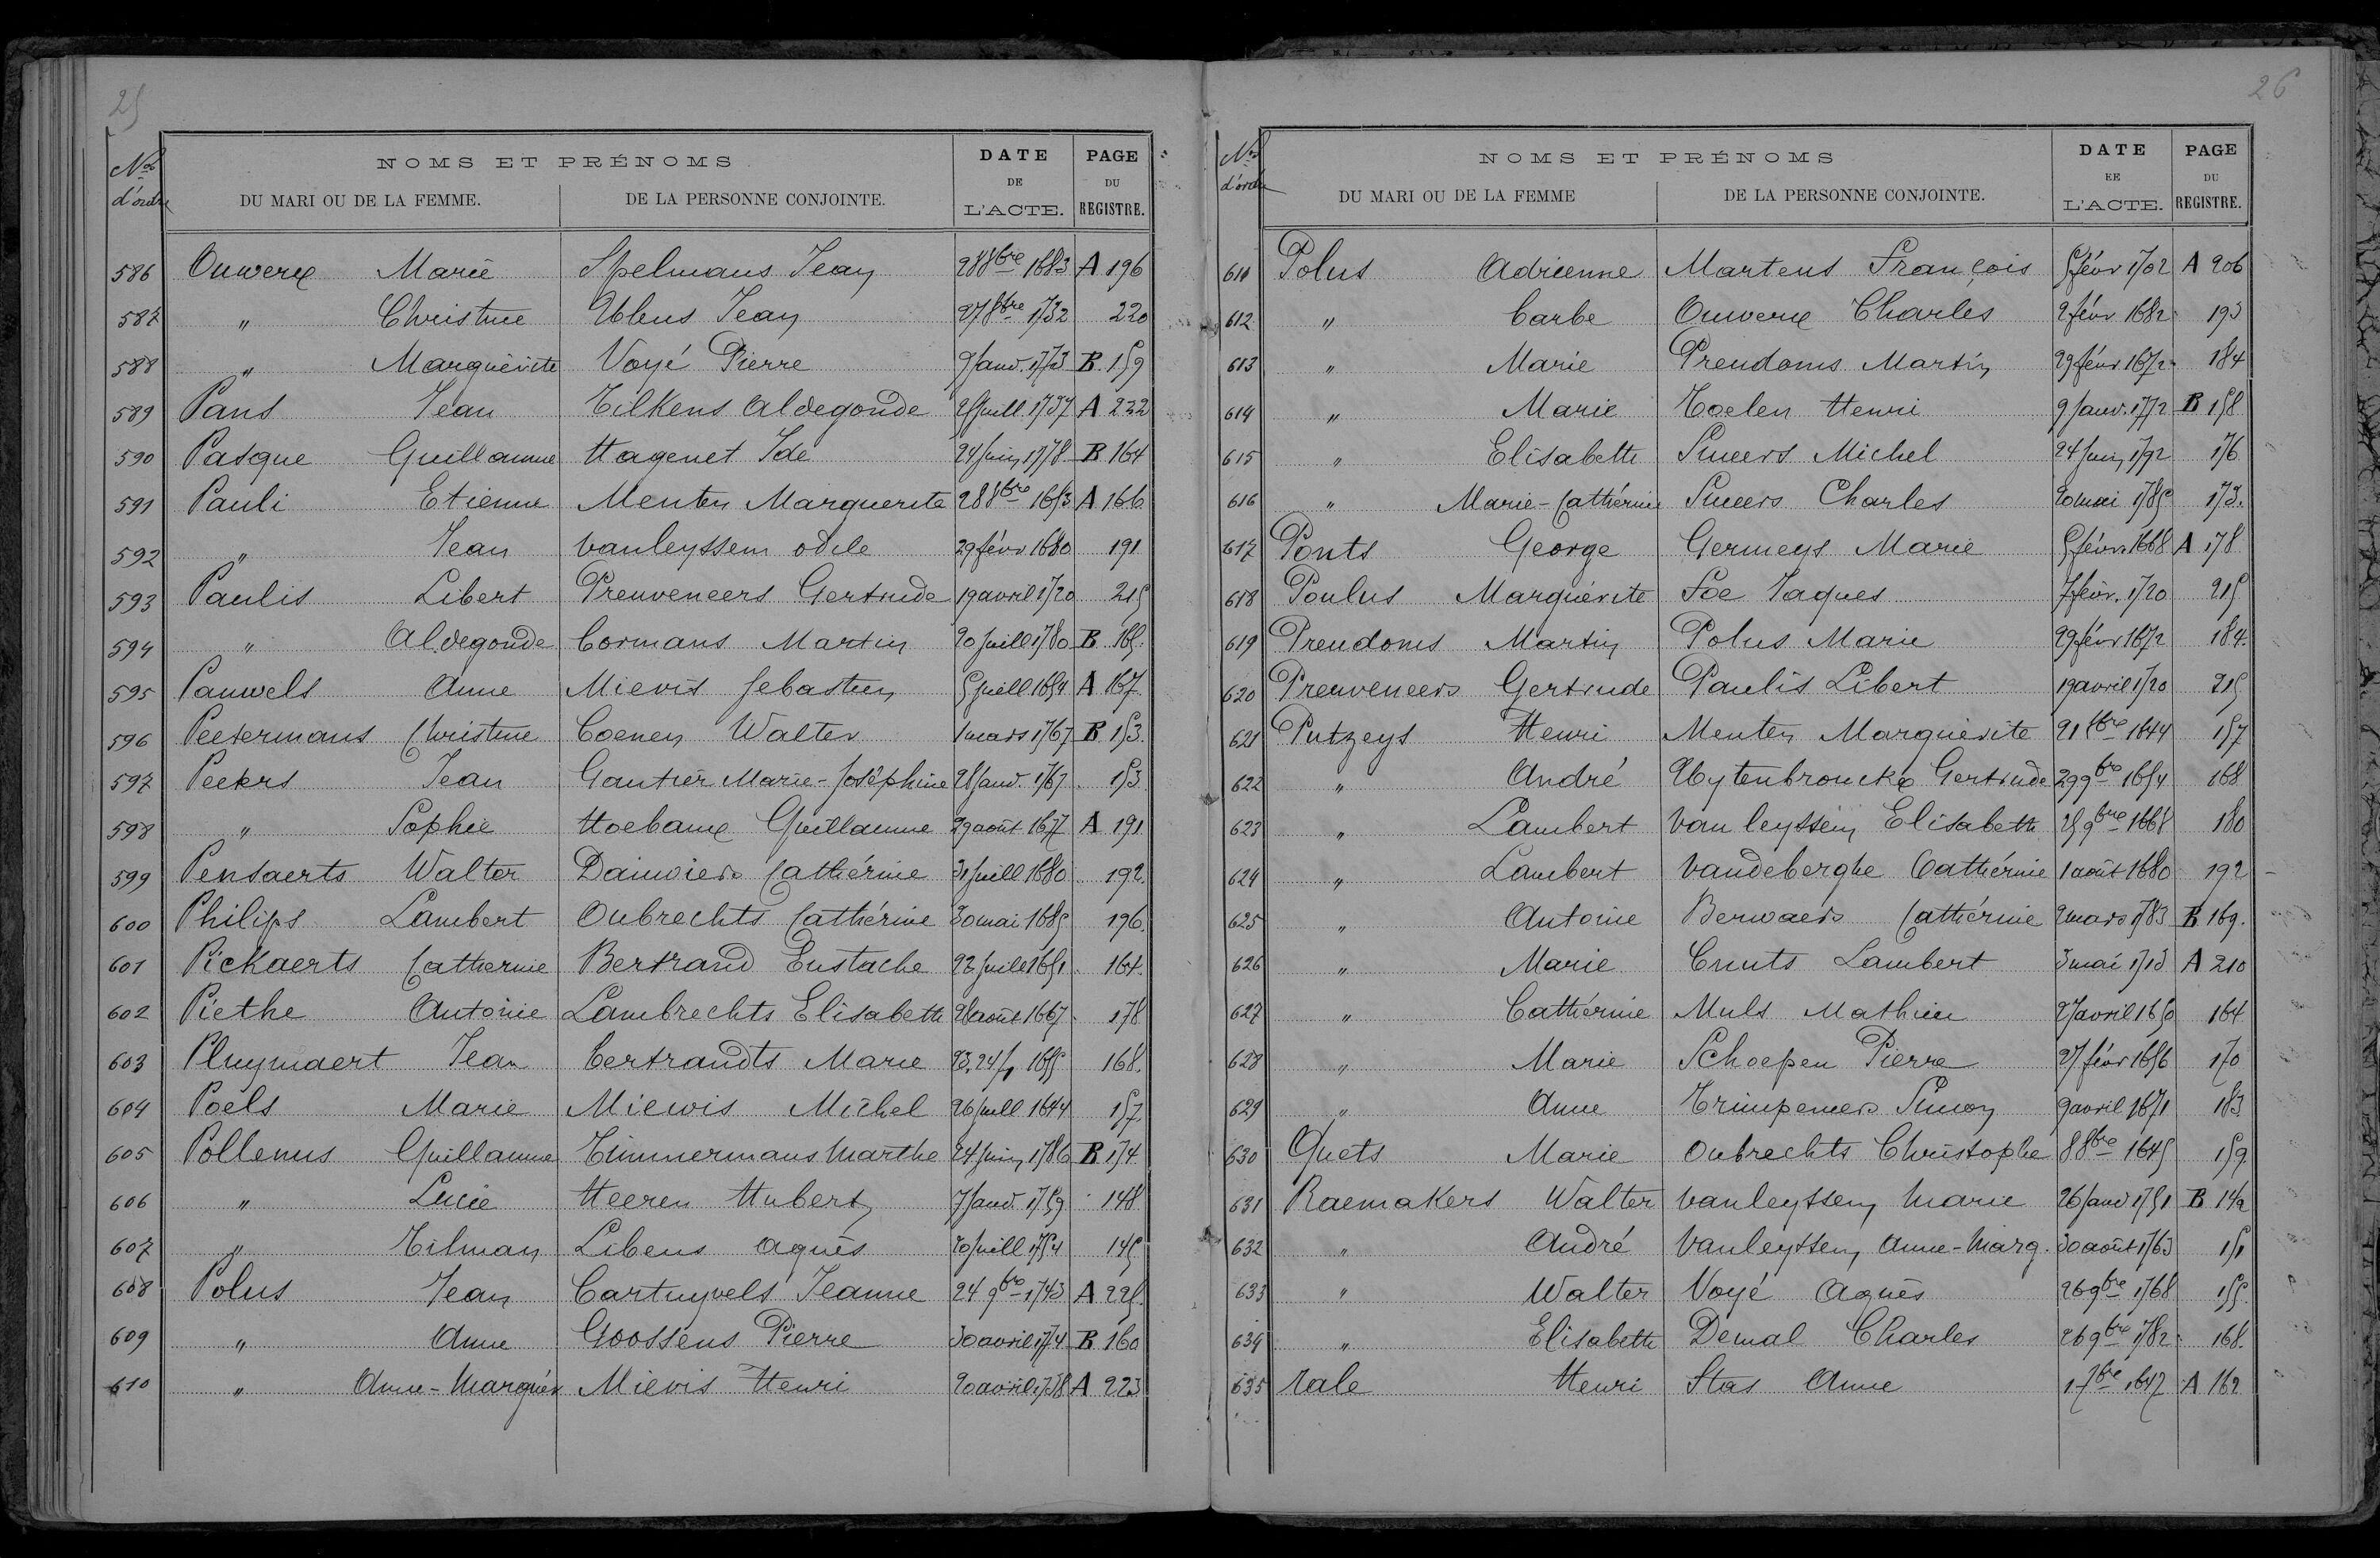 25
Nos d'ordre
NOMS ET PRÉNOMS
DU MARI OU DE LA FEMME.
DE LA PERSONNE CONJOINTE.
DATE DE L'ACTE.
PAGE DU REGISTRE.
586 Ouwerx Marie Spelmans Jean 28 8bre 1683 A 196
587 " Christine Ulens Jean 27 8bre 1732 220
588 " Marguérite Voyé Pierre 9 janv. 1773 B. 159
589 Pans Jean Tilkens Aldegonde juill. 1737 A 222
590 Pasque Guillaume Hagenet Ide 24 juin 1778 B 164
591 Pauli Etienne Menten Marguerite 28 8bre 1653 A 166
592 " Jean Vanleyssem odile 29 févr 1680 191
593 Paulis Libert Preuveneers Gertrude 19 avril 1720 215
594 " Aldegonde Cormans Martin 20 juill 1780 B 165.
595 Pauwels Anne Mievis Sebastien 5 juill 1654 A 167
596 Peetermans Christine Coenen Walter 1 mars 1767 B 153.
597 Peeters Jean Gautier Marie-Joséphine 28 janv. 1767 . 153
598 " Sophie Hoebanx Guillaume 29 août 1677 A 191
599 Pensaerts Walter Catherine 31 juill 1680 192.
600 Philips Lambert Oubrechts Cathérine 30 mai 1685 196.
601 Pickaerts Catherine Bertrand Eustache 23 juill 1651. 164.
602 Piethe Antoine Lambrechts Elisabeth 28 août 1667. 178
603 Pluymaert Jean Certrandts Marie 1655 168.
604 Poels Marie Miewis Michel 26 juill 1644 157.
605 Pollenus Guillaume Timmermans Marthe 24 juin 1786 B 174.
606 " Lucie Heeren Hubert 7 janv. 1759 . 148
607 " Tilman Libens agnès 20 juill 1754 145
608 Polus Jean Cartuyvels Jeanne 24 9bre 1743 A 225.
609 " Anne Goossens Pierre 30 avril 1774 B 160
610 " Anne-Marguér Mievis Henri 20 avril 1738 A 223
26
Nos d'ordre
NOMS ET PRÉNOMS
DU MARI OU DE LA FEMME
DE LA PERSONNE CONJOINTE.
DATE EE L'ACTE.
PAGE DU REGISTRE.
611 Polus Adrienne Martens François 5 févr 1702 A 206
612 " Barbe Ouwerx Charles 2 févr 1682 193
613 " Marie Preudoms Martin 29 févr 1672 184
614 " Marie Toelen Henri 9 janv. 1772 B 158
615 " Elisabeth Smeers Michel 24 juin 1792 176
616 " Marie-Cathérine Smeers Charles 20 mai 1785 173.
617 Ponts George Germeys Marie 5 févr. 1668 A 178
618 Poulus Marguérite Foe Jaques 7 févr. 1720 215
619 Preudoms Martin Polus Marie 29 févr 1672 184.
620 Preuveneers Gertrude Paulis Libert 19 avril 1720 215
621 Putzeys Henri Menten Marguérite 21 8bre 1644 157
622 " André Uytenbrouckx Gertrude 29 9bre 1654 168
623 " Lambert Van leyssem Elisabeth 25 9bre 1668 180
624 " Lambert Vandeberghe Cathérine 1 août 1680 192
625 " Antoine Berwaers Cathérine 2 mars 1783 B 169.
626 " Marie Cnuts Lambert 3 mai 1713 A 210
627 " Cathérine Muls Mathieu 27 avril 1650 164
628 " Marie Schoepen Pierre 27 févr 1656 170
629 " Anne Trimpeneers Simon 9 avril 1671 183
630 Quets Marie Oubrechts Christophe 8 8bre 1645 159
631 Raemakers Walter Vanleyssem Marie 26 janv 1751 B 142
632 " André Vanleyssem Anne-Marg. 30 août 1763 151
633 " Walter Voyé Agnès 26 9bre 1768 155.
634 " Elisabeth Demal Charles 26 9bre 1782. 168.
635 rale Henri Stas Anne 1 7bre 1647 A 162